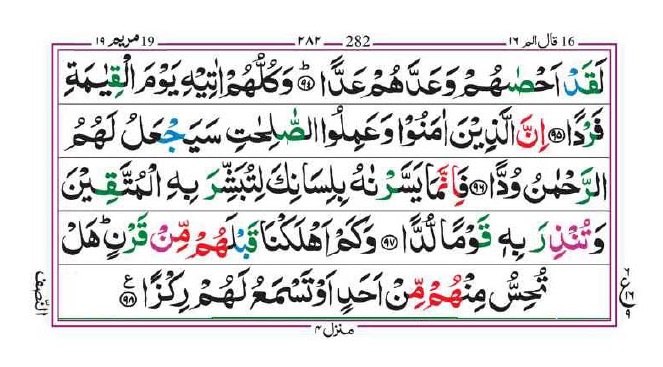 ١٦ قال الم 16 282 ٢٨٢ 19 مريم ١٩
لَقَدْ اَحْصٰىهُمْ وَعَدَّهُمْ عَدًّا ؕ﴿۹۴﴾ وَكُلُّهُمْ اٰتِيْهِ يَوْمَ الْقِيٰمَةِ
فَرْدًا ﴿۹۵﴾ اِنَّ الَّذِيْنَ اٰمَنُوْا وَعَمِلُوا الصّٰلِحٰتِ سَيَجْعَلُ لَهُمُ
الرَّحْمٰنُ وُدًّا ﴿۹۶﴾ فَاِنَّمَا يَسَّرْنٰهُ بِلِسَانِكَ لِتُبَشِّرَ بِهِ الْمُتَّقِيْنَ
وَتُنْذِرَ بِهٖ قَوْمًا لُّدًّا ﴿۹۷﴾ وَكَمْ اَهْلَكْنَا قَبْلَهُمْ مِّنْ قَرْنٍ ؕ هَلْ
تُحِسُّ مِنْهُمْ مِّنْ اَحَدٍ اَوْ تَسْمَعُ لَهُمْ رِكْزًا ﴿۹۸﴾ ع
النصف
منزل ۴